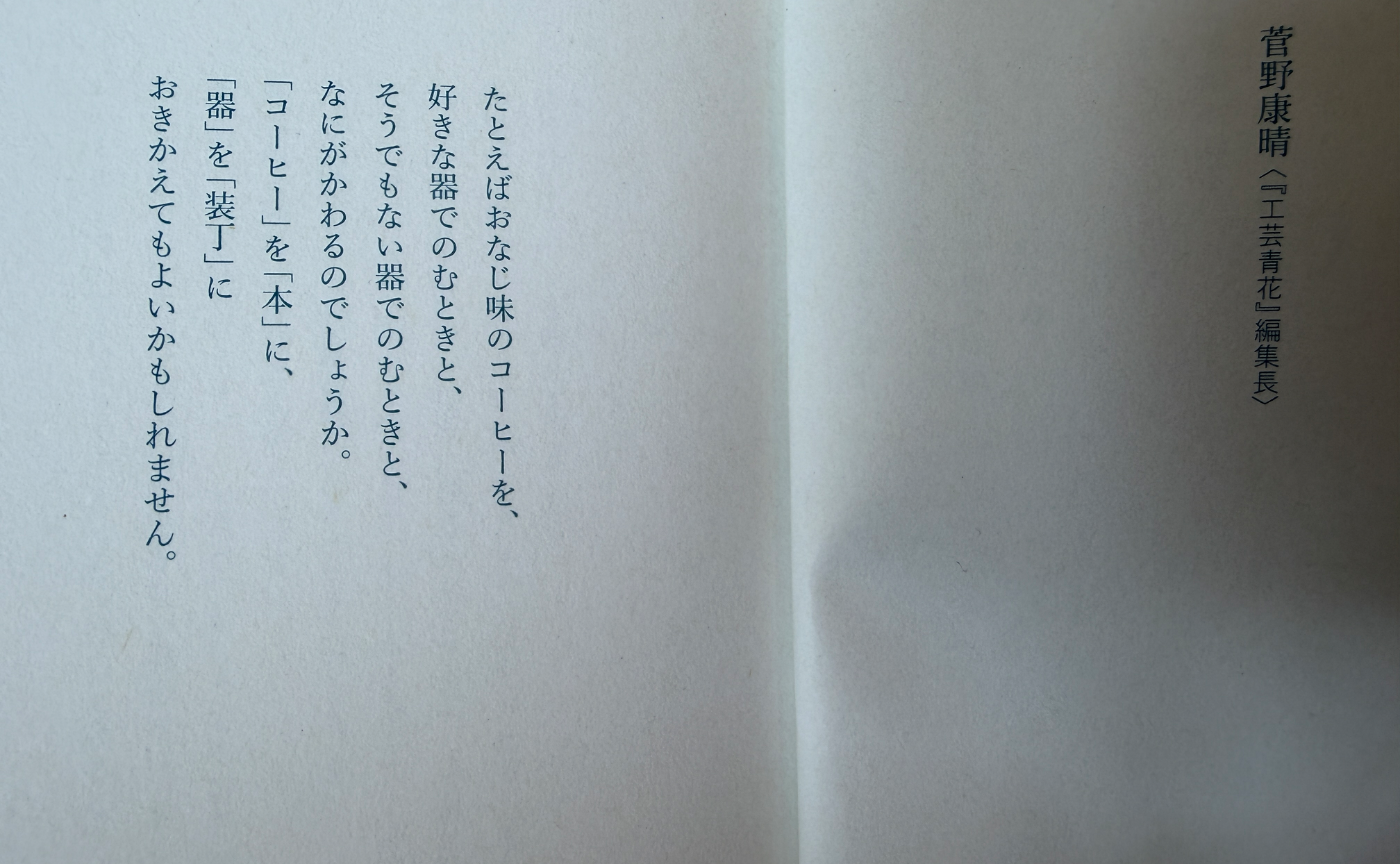 菅野康晴〈『工芸青花』編集長〉
たとえばおなじ味のコーヒーを、
好きな器でのむときと、
そうでもない器でのむときと、
なにがかわるのでしょうか。
「コーヒー」を「本」に、
「器」を「装丁」に
おきかえてもよいかもしれません。